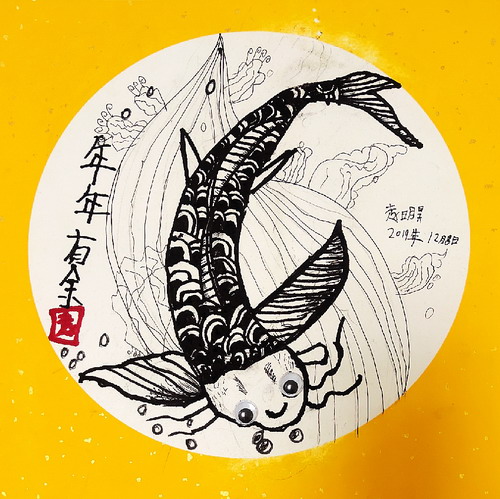 年年有余
明昊
2019年12月8日